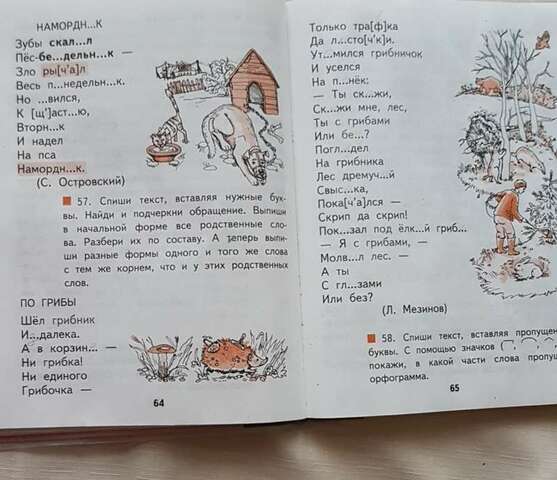 НАМОРДН...К
Зубы скал...л
Пёс-бе...дельн...к —
Зло ры[ч'а]л
Весь п...недельн...к.
Но ...вился,
К [щ']аст...ю,
Вторн...к
И надел
На пса
Намордн...к.
(С. Островский)
57. Спиши текст, вставляя нужные бук-
вы. Найди и подчеркни обращение. Выпиши
в начальной форме все родственные сло-
ва. Разбери их по составу. А теперь выпи-
ши разные формы одного и того же слова
с тем же корнем, что и у этих родственных
слов.
ПО ГРИБЫ
Шёл грибник
И...далека.
А в корзин... —
Ни грибка!
Ни единого
Грибочка —
64
Только тра[ф]ка
Да л...сто[ч'к]и.
Ут...мился грибничок
И уселся
На п...нёк:
— Ты ск...жи,
Ск...жи мне, лес,
Ты с грибами
Или бе...?
Погл...дел
На грибника
Лес дремуч...й.
Свыс...ка,
Пока[ч'а]лся —
Скрип да скрип!
Пок...зал под ёлк...й гриб...
— Я с грибами, —
Молв...л лес. —
А ты
С гл...зами
Или без?
(Л. Мезинов)
58. Спиши текст, вставляя пропущен
буквы. С помощью значков
покажи, в какой части слова пропущ
орфограмма.
65